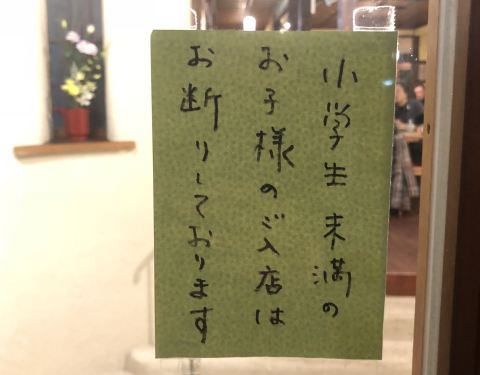 小学生未満の
お子様のご入店は
お断りしております